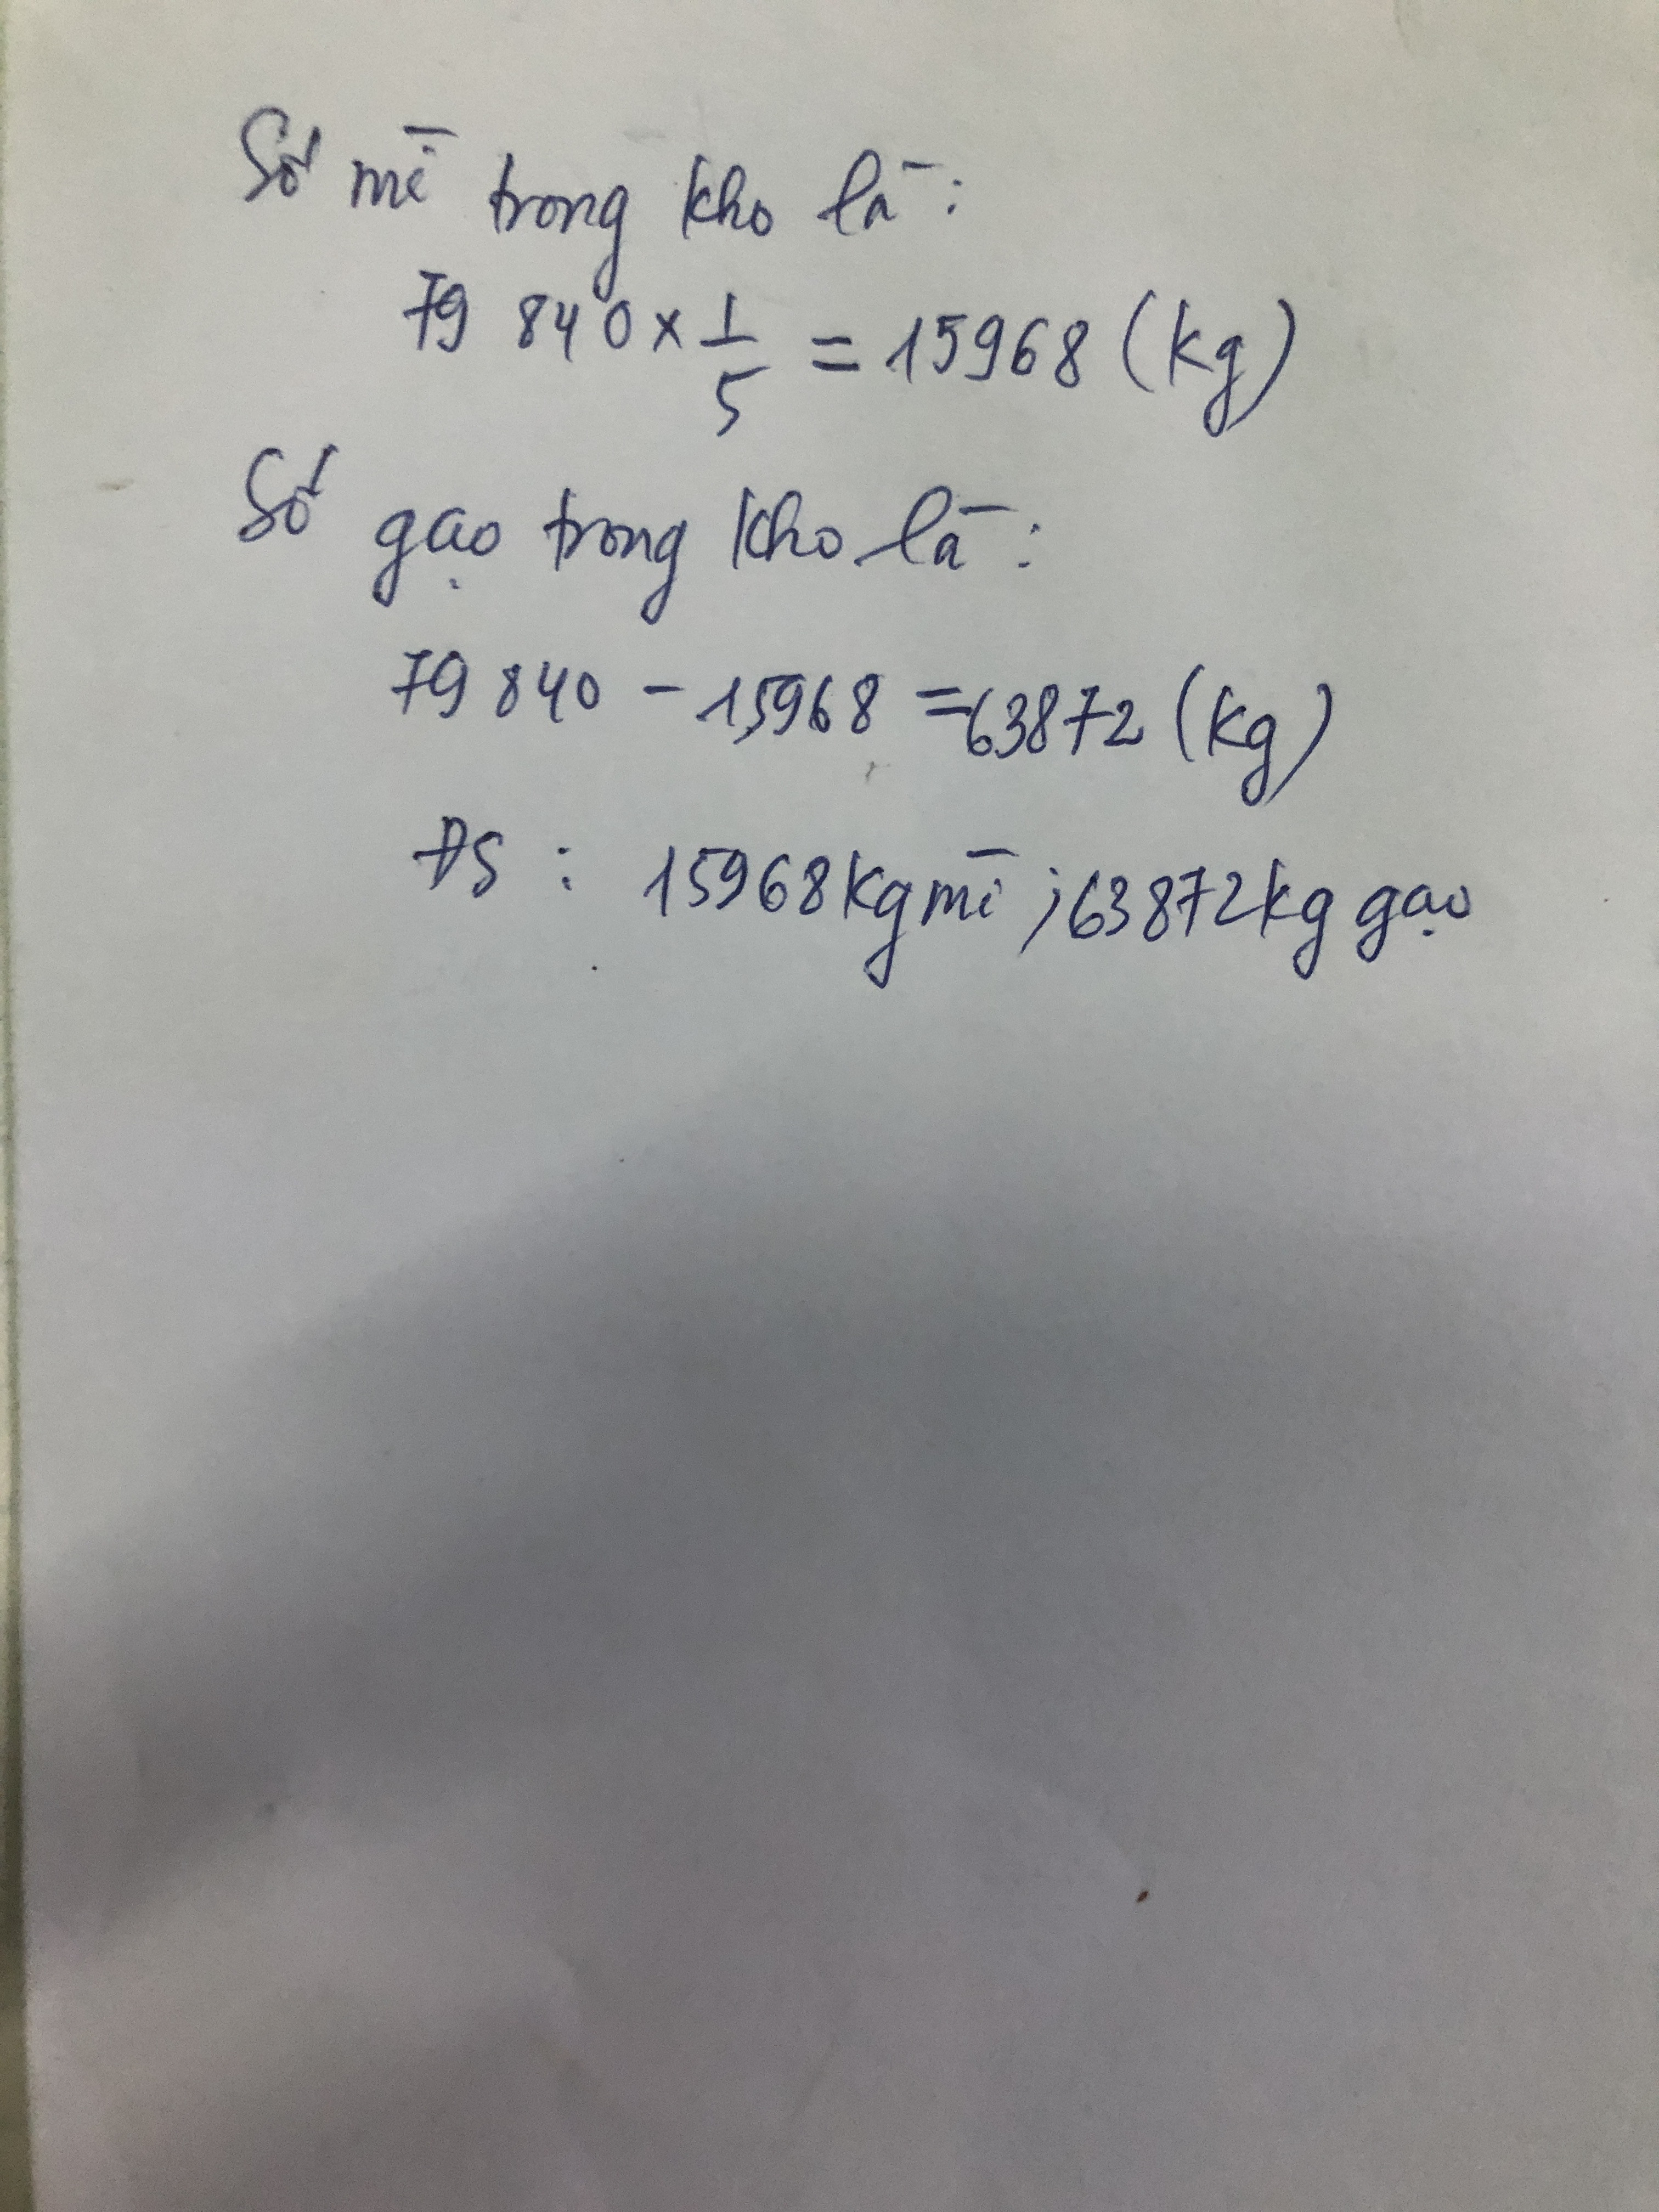 Số mì trong kho là:
79 840 × 1/5 = 15968 (kg)
Số gạo trong kho là:
79 840 - 15968 = 63872 (kg)
ĐS : 15968kg mì ; 63872kg gạo